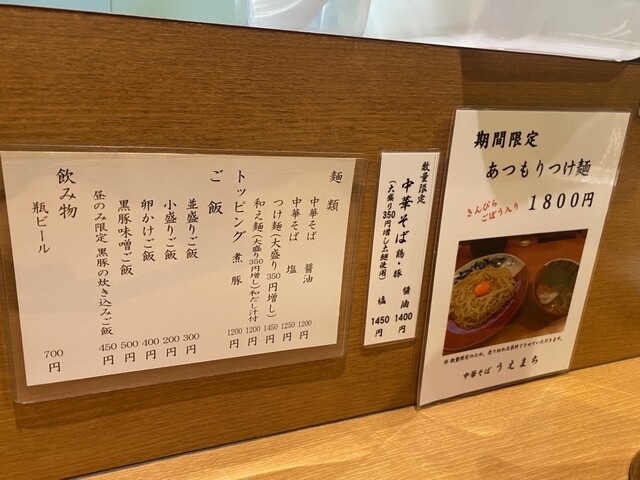 麺類
中華そば 醤油 1200円
中華そば 塩 1250円
つけ麺(大盛り350円増し) 1450円
和え麺(大盛り350円増し)和だし汁付 1200円
トッピング 煮豚 1200円
ご飯
並盛りご飯 300円
小盛りご飯 200円
卵かけご飯 400円
黒豚味噌ご飯 500円
昼のみ限定 黒豚の炊き込みご飯 450円
飲み物
瓶ビール 700円
数量限定
中華そば 鶏・豚 醤油 1400円
(大盛り350円増し太麺使用) 塩 1450円
期間限定
あつもりつけ麺
きんぴら
ごぼう入り
1800円
※数量限定のため、売り切れ次第終了させていただきます。
中華そば うえまち